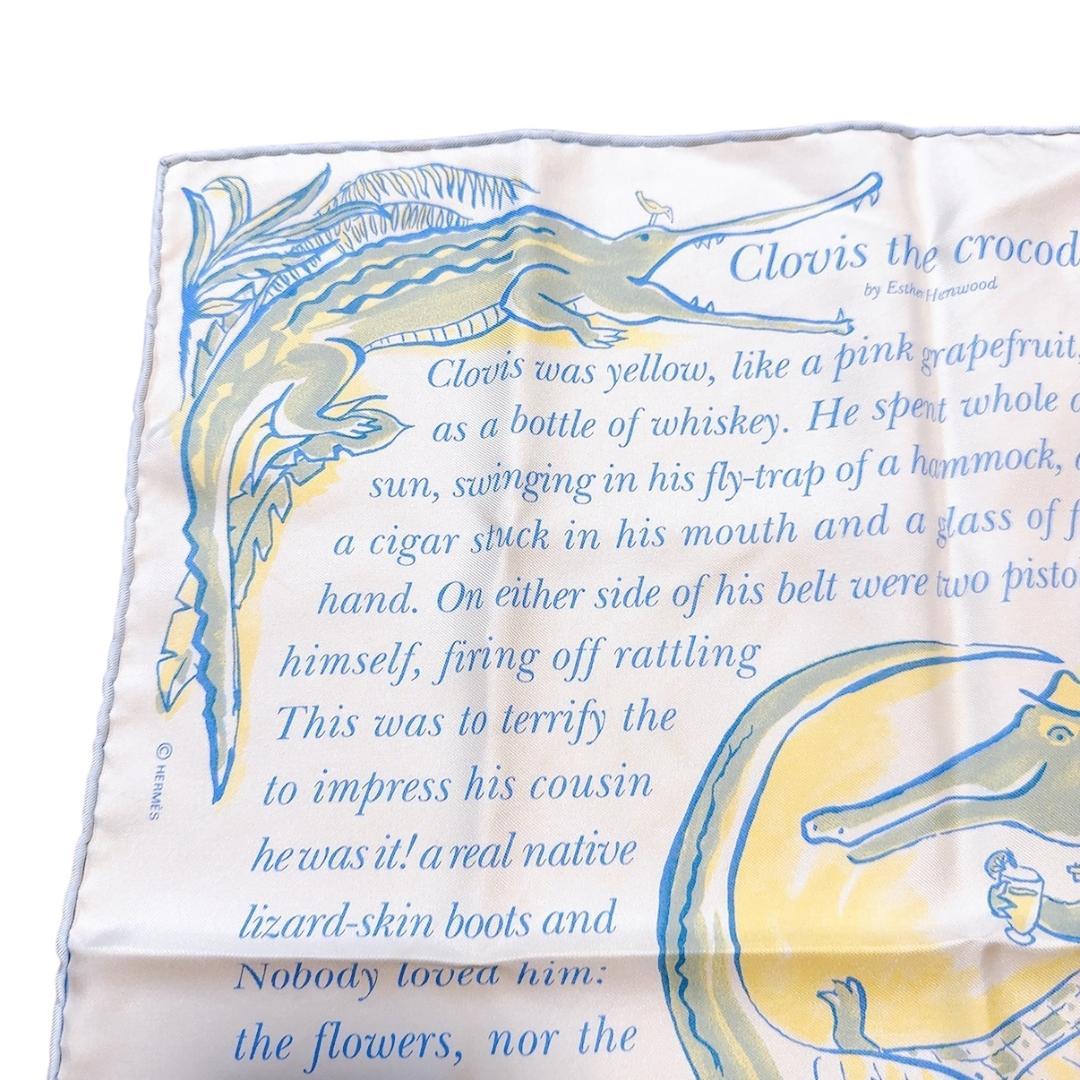 Clovis the crocod
by Esther Henwood
Clovis was yellow, like a pink grapefruit,
as a bottle of whiskey. He spent whole
sun, swinging in his fly-trap of a hammock,
a cigar stuck in his mouth and a glass of f
hand. On either side of his belt were two pisto
himself, firing off rattling
This was to terrify the
to impress his cousin
he was it! a real native
lizard-skin boots and
Nobody loved him:
the flowers, nor the
© HERMÈS